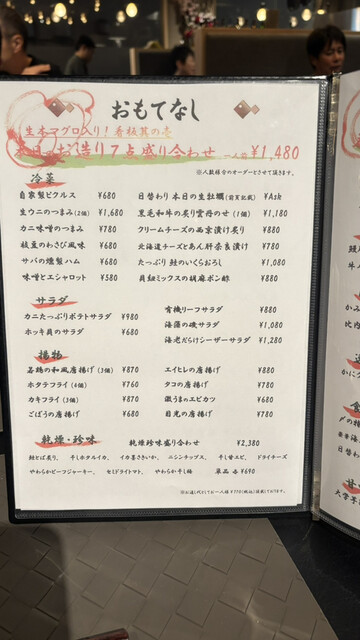 おもてなし
生本マグロ入り！看板其の壱
本日のお造り7点盛り合わせ 一人前 ¥1,480
※人数様分のオーダーとさせて頂きます。
冷菜
自家製ピクルス ¥680 日替わり 本日の生牡蠣(前菜記載) ¥Ask
生ウニのつまみ(2個) ¥1,680 黒毛和牛の炙り雲丹のせ(1個) ¥1,180
カニ味噌のつまみ ¥780 クリームチーズの西京漬け炙り ¥880
枝豆のわさび風味 ¥680 北海道チーズとあん肝奈良漬け ¥780
サバの燻製ハム ¥680 たっぷり鮭のいくらおろし ¥1,080
味噌とエシャロット ¥580 貝紐ミックスの胡麻ポン酢 ¥880
サラダ
カニたっぷりポテトサラダ ¥980 有機リーフサラダ ¥880
ホッキ貝のサラダ ¥680 海藻の磯サラダ ¥1,080
海老だらけシーザーサラダ ¥1,280
揚物
若鶏の和風唐揚げ(3個) ¥870 エイヒレの唐揚げ ¥880
ホタテフライ(4個) ¥760 タコの唐揚げ ¥780
カキフライ(3個) ¥870 激うまのエビカツ ¥680
ごぼうの唐揚げ ¥680 目光の唐揚げ ¥780
乾燥・珍味 乾燥珍味盛り合わせ ¥2,380
鮭とば炙り、 干しホタルイカ、 イカ墨さきいか、 ニシンチップス、 干し甘エビ、 ドライチーズ
やわらかビーフジャーキー、 セミドライトマト、 やわらか干し梅 単品 各¥690